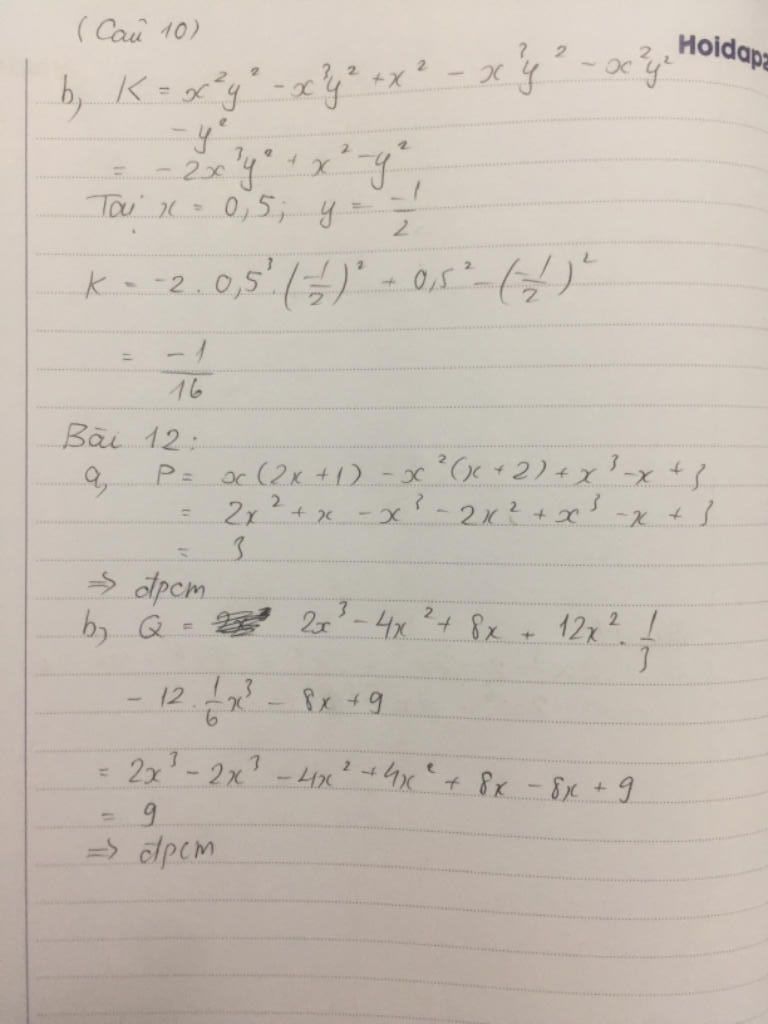 (Câu 10)
Hoidapa
b, K = x²y² - x³y² + x² - x³y² - x²y²
- y²
= - 2x³y² + x² - y²
Tại x = 0,5; y = -1/2
K = -2 . 0,5³ . (-1/2)² + 0,5² - (-1/2)²
= -1/16
Bài 12:
a, P = x(2x+1) - x²(x+2) + x³ - x + 3
= 2x² + x - x³ - 2x² + x³ - x + 3
= 3
=> đpcm
b, Q = 2x³ - 4x² + 8x + 12x² . 1/3
- 12 . 1/6 x³ - 8x + 9
= 2x³ - 2x³ - 4x² + 4x² + 8x - 8x + 9
= 9
=> đpcm